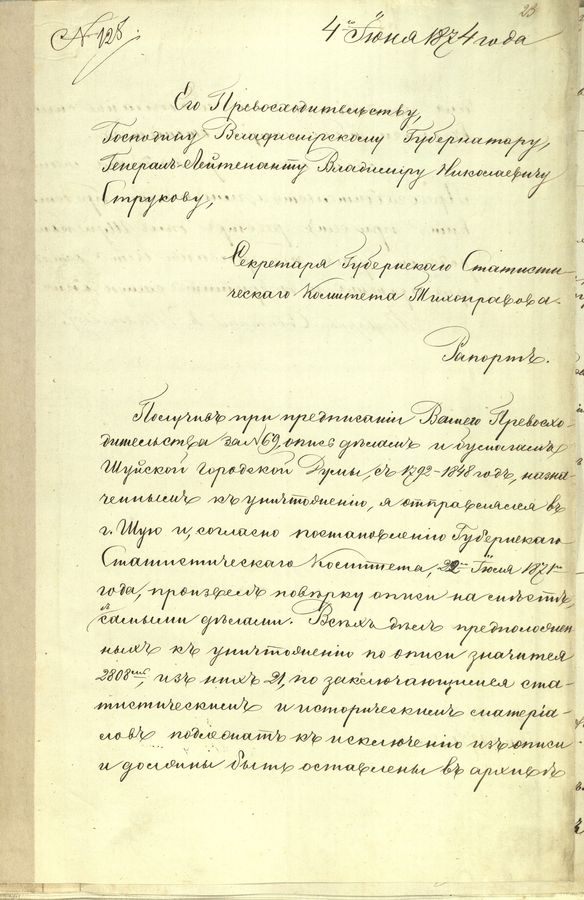 23
№ 128.
4го Іюня 1874 года
Его Превосходительству,
Господину Владимірскому Губернатору,
Генералъ-Лейтенанту Владиміру Николаевичу
Струкову,
Секретаря Губернскаго Статисти-
ческаго Комитета Тихонравова.
Рапортъ.
Получивъ при предписаніи Вашего Превосхо-
дительства за № 69, опись дѣламъ и бумагамъ
Шуйской городской Думы, съ 1792-1848 годъ, назна-
ченнымъ къ уничтоженію, я отправлялся въ
г. Шую и, согласно постановленію Губернскаго
Статистическаго Комитета, 22го Іюля 1871го
года, произвелъ повѣрку описи на мѣстѣ,
съ самыми дѣлами. Всѣхъ дѣлъ предположен-
ныхъ къ уничтоженію по описи значится
2808мь, изъ нихъ 21, по заключающимся ста-
тистическимъ и историческимъ матеріа-
ловъ подлежатъ къ исключенію изъ описи
и должны быть оставлены въ архивѣ